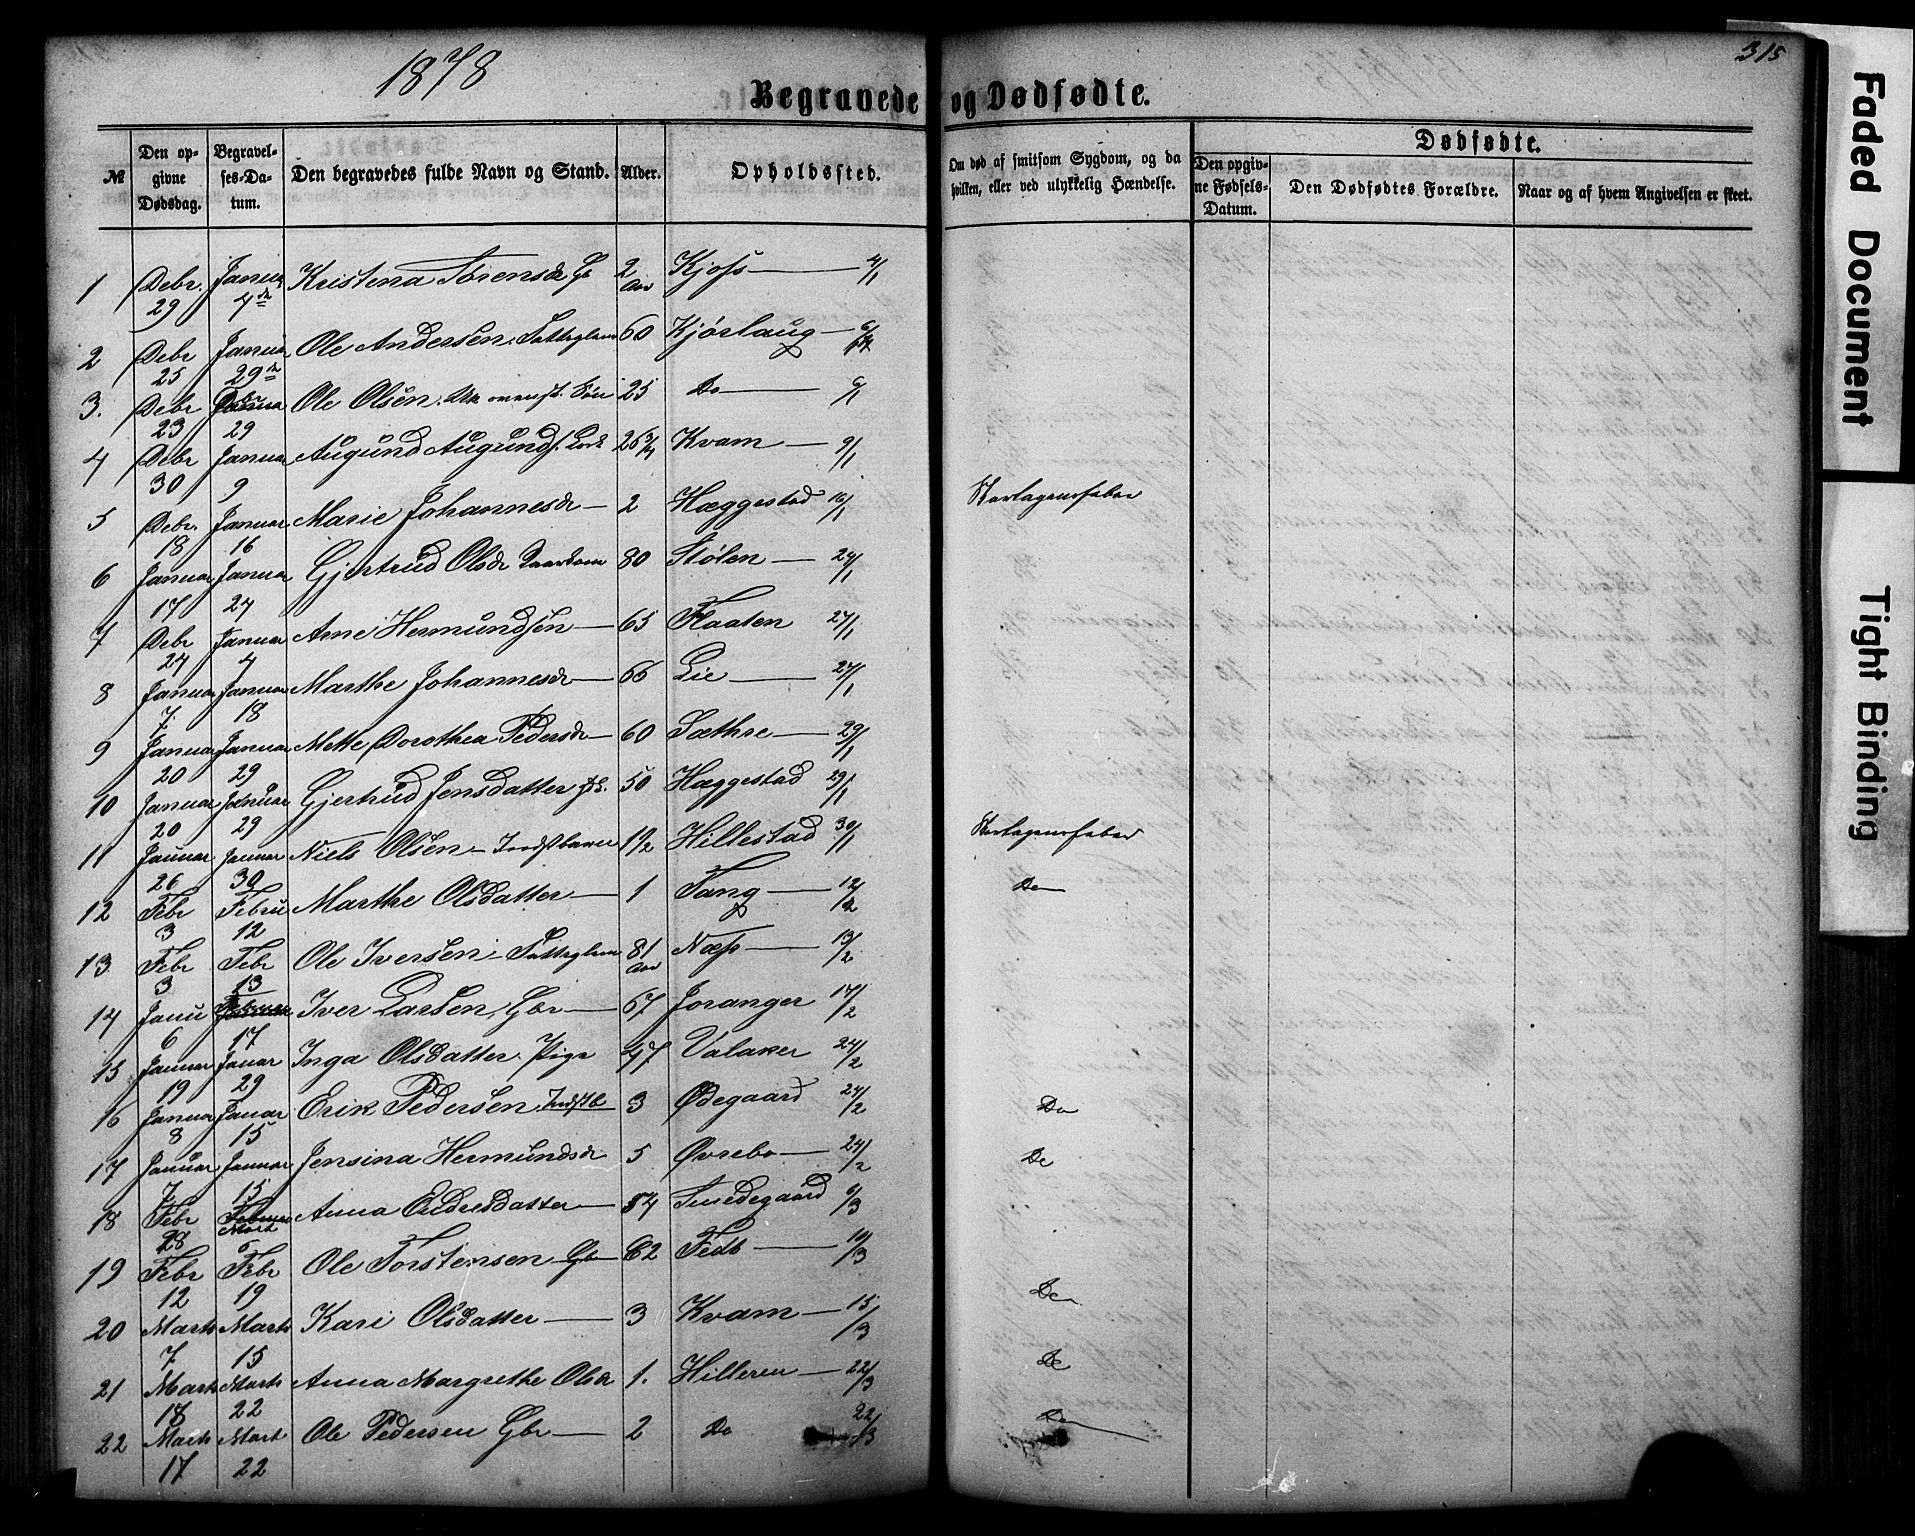 1878
315
Begravede og Dødfødte.
№
Den opgivne Dødsdag.
Begravelses-Datum.
Den begravedes fulde Navn og Stand.
Alder.
Opholdssted.
Om død af smitsom Sygdom, og da hvilken, eller ved ulykkelig Hændelse.
Dødfødte.
Den opgivne Fødsels-Datum.
Den Dødfødtes Forældre.
Naar og af hvem Angivelsen er skeet.
1 Debr. 29 Januar 4de Kristena Sørensdr 2 Aar Kjofs 4/1
2 Debr 25 Januar 29 Ole Andersen 60 Kjørlaug
3. Debr 23 29 Ole Olsen. Søn 25 Do 6/1
4 Debr 30 Januar 9 Augund Augunds. 26 3/4 Kvam 9/1
5 Debr. 18 Januar 16 Marie Johannesdr 2 Hæggestad 16/1 Skarlagensfeber
6 Januar 17 Januar 24 Gjertrud Olsdr 80 Stølen 24/1
7 Debr 24 Januar 4 Arne Hermundsen 65 Flaaten 24/1
8 Januar 7 Januar 18 Marthe Johannesdr 66 Lie 24/1
9 Januar 20 Januar 29 Mette Dorothea Pedersdr 60 Sæthre 29/1
10 Januar 20 Januar 29 Gjertrud Jensdatter 50 Hæggestad 29/1
11 Januar 26 Januar 30 Niels Olsen 1 1/2 Hillestad 30/1 Skarlagensfeber
12 Febr 3 Febru 12 Marthe Olsdatter 1 Tang 12/2 Do
13. Febr 3 Febr 13 Ole Iversen 81 Aar Næss 13/2
14 Janu 6 Februar 17 Iver Larsen Gbr 67 Joranger 17/2
15 Januar 19 Januar 29 Inga Olsdatter Pige 47 Valaker 24/2
16 Januar 8 Januar 15 Erik Pedersen 3 Ødegaard 24/2 Do
17 Januar 7 Januar 15 Jensina Hermundsdr 5 Øvrebo 24/2 Do
18 Febr 28 Mart 6 Anna Endresdatter 54 Smedegaard 6/3
19 Febr 12 Febr 19 Ole Torstensen Gbr 62 Fedt 10/3
20 Marts 7 Marts 15 Kari Olsdatter 3 Kvam 15/3 Do
21 Marts 18 Marts 22 Anna Margrethe Olsdr 1. Hilleren 22/3 Do
22 Marts 17 Mart 22 Ole Pedersen Gbr 2 Do 22/3 Do
Faded Document
Tight Binding